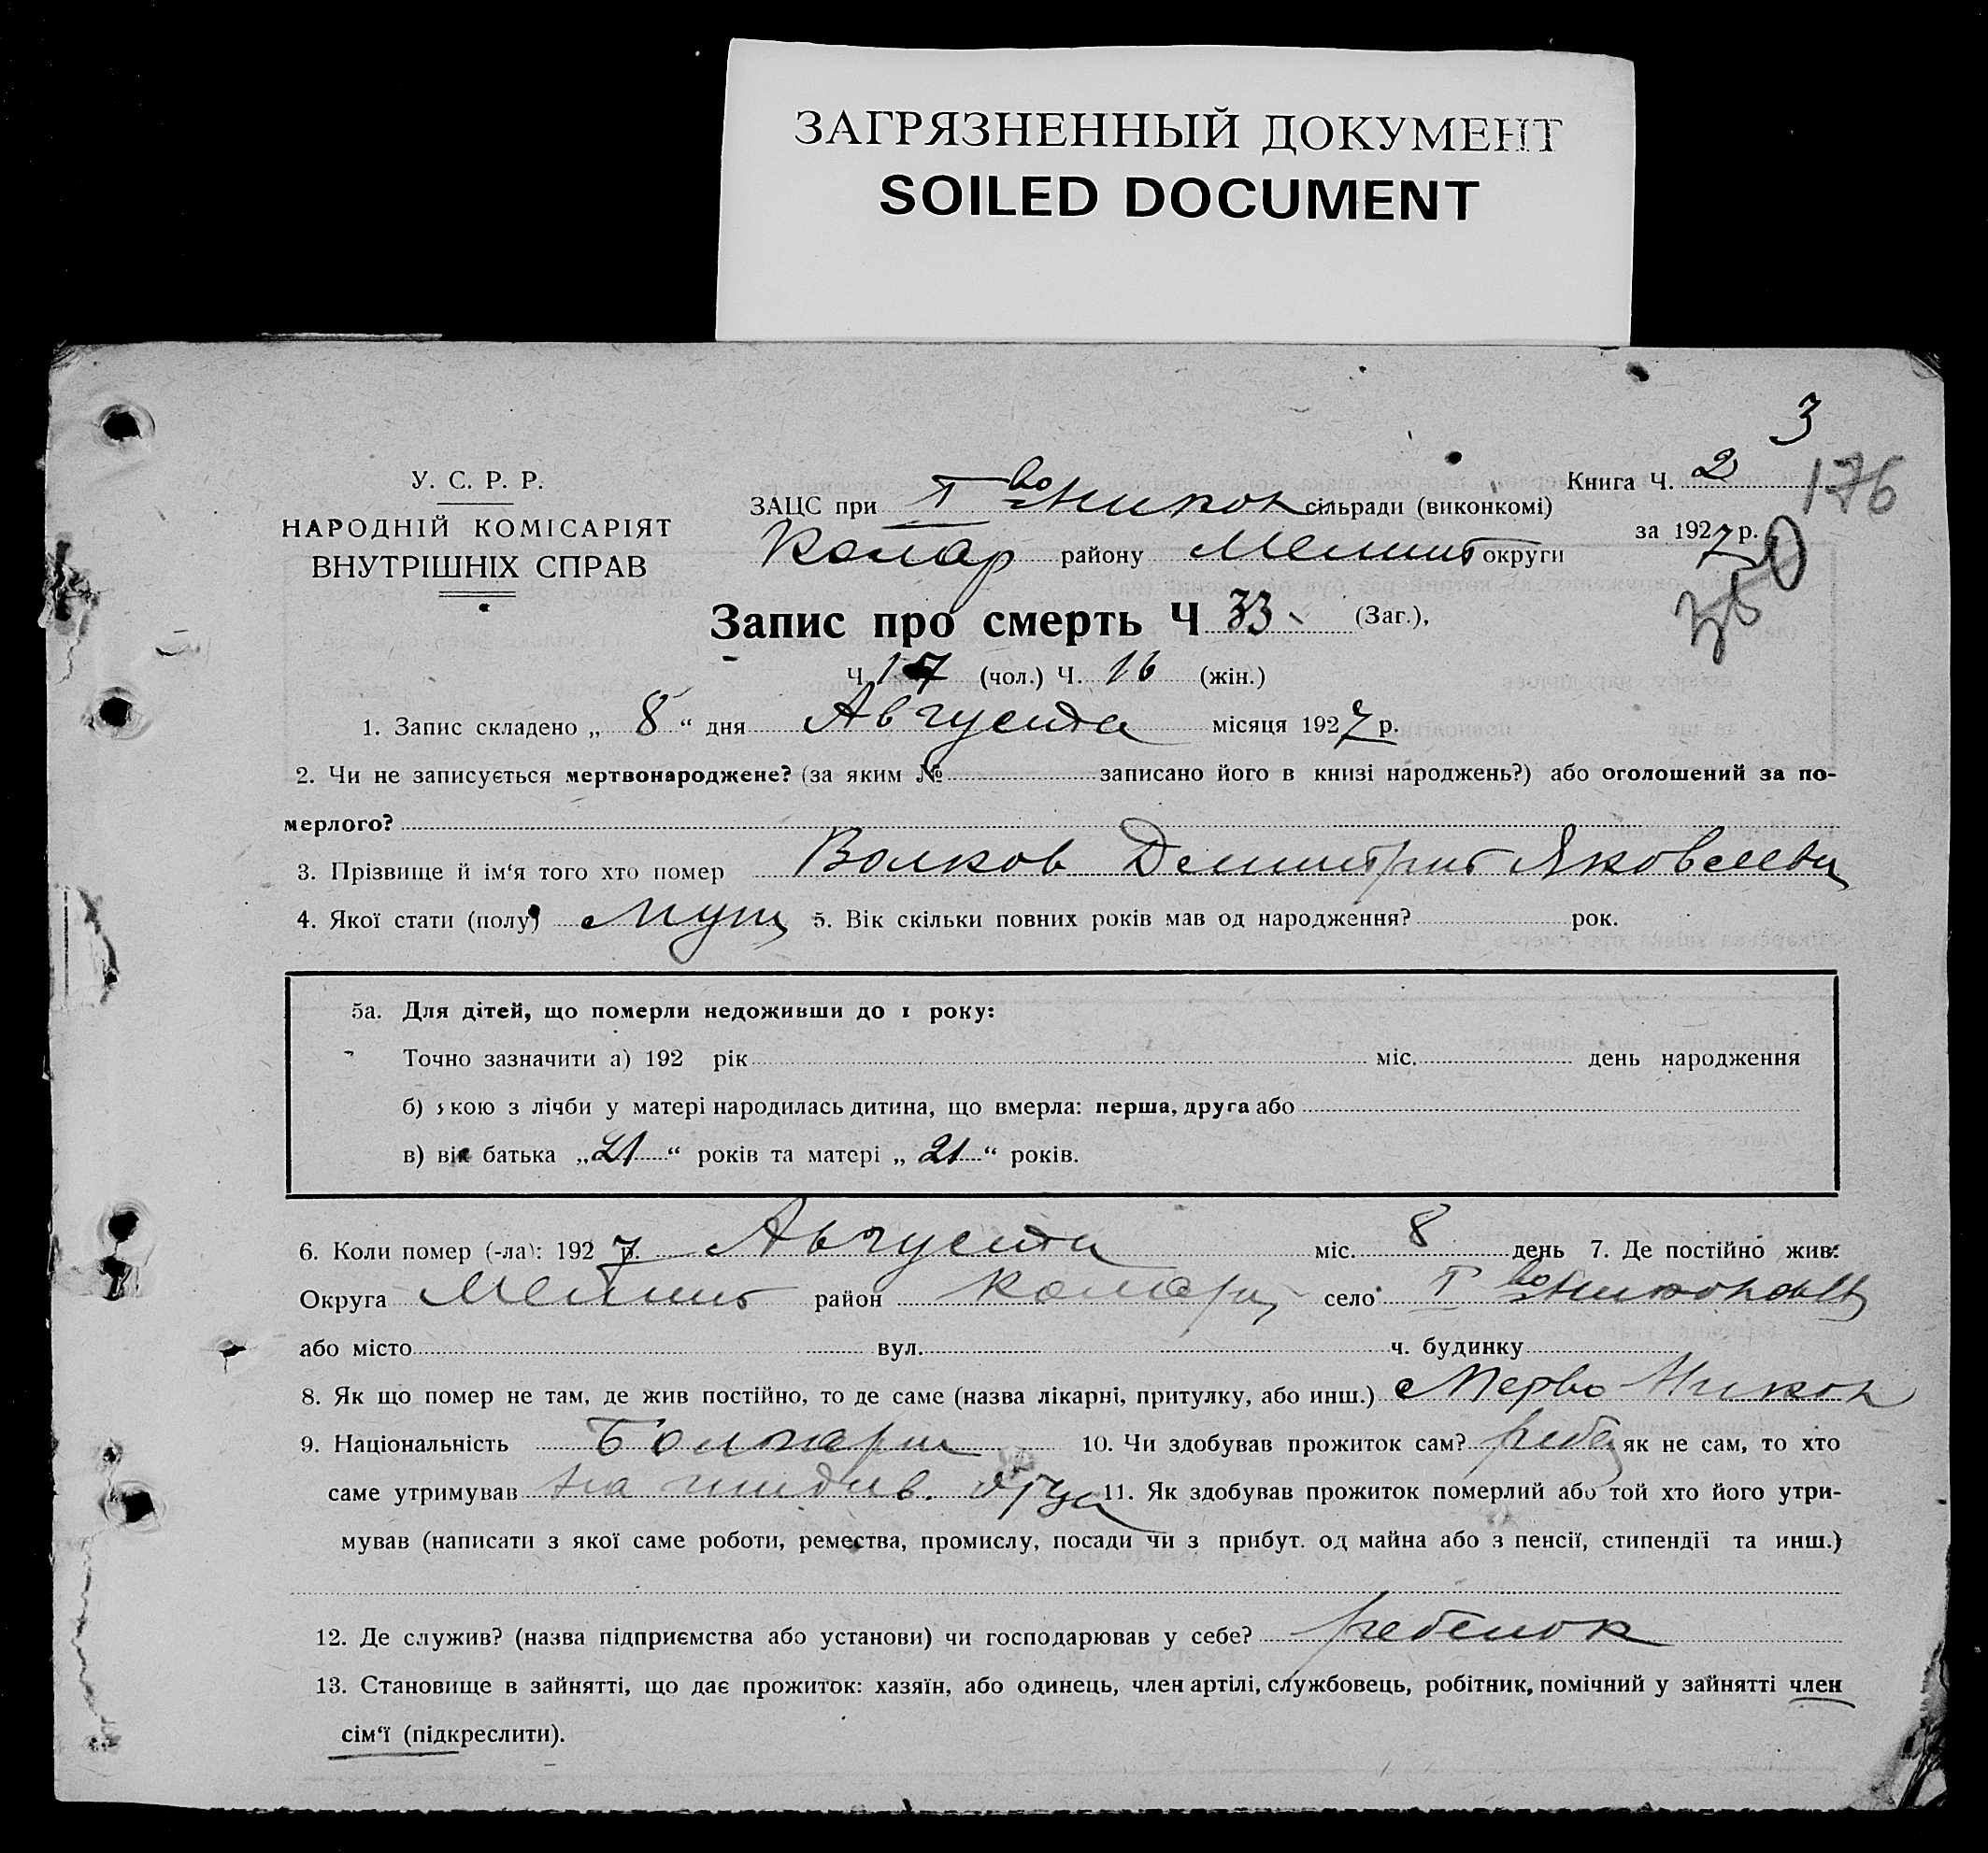 ЗАГРЯЗНЕННЫЙ ДОКУМЕНТ
SOILED DOCUMENT
3
176
У. С. Р. Р.
НАРОДНІЙ КОМІСАРІЯТ
ВНУТРІШНІХ СПРАВ
Книга Ч. 2
за 1927 р.
ЗАЦС при I во Никон сільради (виконкомі)
Колар району Мелит округи
Запис про смерть Ч 33 (Заг.),
Ч. 17 (чол.) Ч. 16 (жін.)
1. Запис складено „ 8 “ дня Августа місяця 1927 р.
2. Чи не записується мертвонароджене? (за яким № записано його в книзі народжень?) або оголошений за по-
мерлого?
3. Прізвище й ім‘я того хто помер Волков Димитрий Яковлевич
4. Якої стати (полу) Муж 5. Вік скільки повних років мав од народження? рок.
5а. Для дітей, що померли недоживши до 1 року:
Точно зазначити а) 192 рік міс. день народження
б) якою з лічби у матері народилась дитина, що вмерла: перша, друга або
в) вік батька „21“ років та матері „21“ років.
6. Коли помер (-ла): 1927 р. Августа міс. 8 день 7. Де постійно жив:
Округа Мелит район Колар село I во Никон
або місто вул. ч. будинку
8. Як що помер не там, де жив постійно, то де саме (назва лікарні, притулку, або инш.) Перво Никон
9. Національність Болгарин 10. Чи здобував прожиток сам? реб як не сам, то хто
саме утримував на иждив. отца 11. Як здобував прожиток померлий або той хто його утри-
мував (написати з якої саме роботи, ремества, промислу, посади чи з прибут. од майна або з пенсії, стипендії та инш.)
12. Де служив? (назва підприємства або установи) чи господарював у себе? ребенок
13. Становище в зайнятті, що дає прожиток: хазяїн, або одинець, член артілі, службовець, робітник, помічний у зайнятті член
сім‘ї (підкреслити).